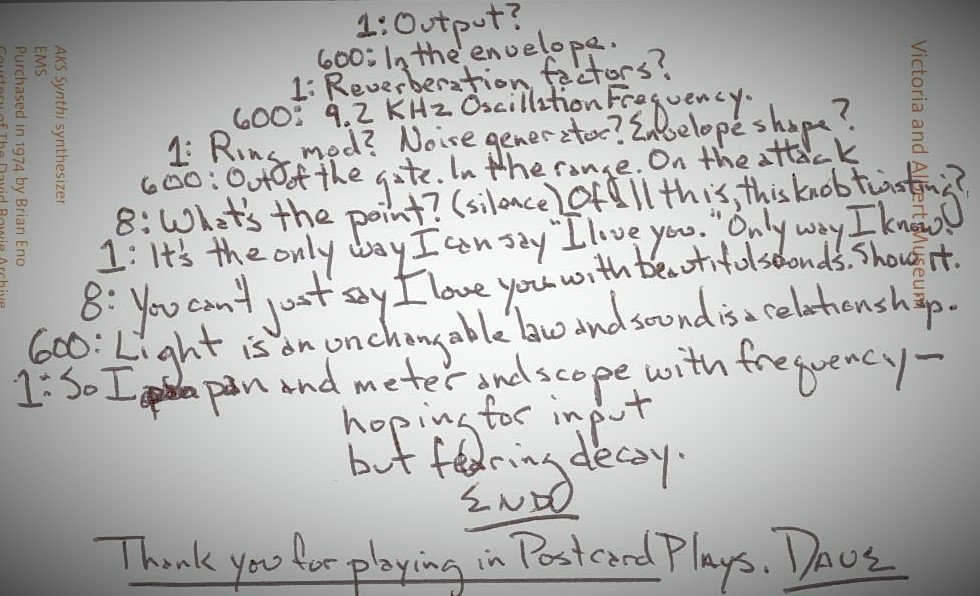 1: Output?
600: In the envelope.
1: Reverberation factors?
600: 9.2 KHz Oscillation Frequency.
1: Ring mod? Noise generator? Envelope shape?
600: Out of the gate. In the range. On the attack
8: What's the point? (silence) Of all this, this knob twisting?
1: It's the only way I can say "I love you." Only way I know?
8: You can't just say I love you with beautiful sounds. Show it.
600: Light is an unchangable law and sound is a relationship.
1: So I pan and meter and scope with frequency—
hoping for input
but fearing decay.
END
Thank you for playing in Postcard Plays. DAVE
AKS Synthi synthesizer
EMS
Purchased in 1974 by Brian Eno
Courtesy of The David Bowie Archive
Victoria and Albert Museum